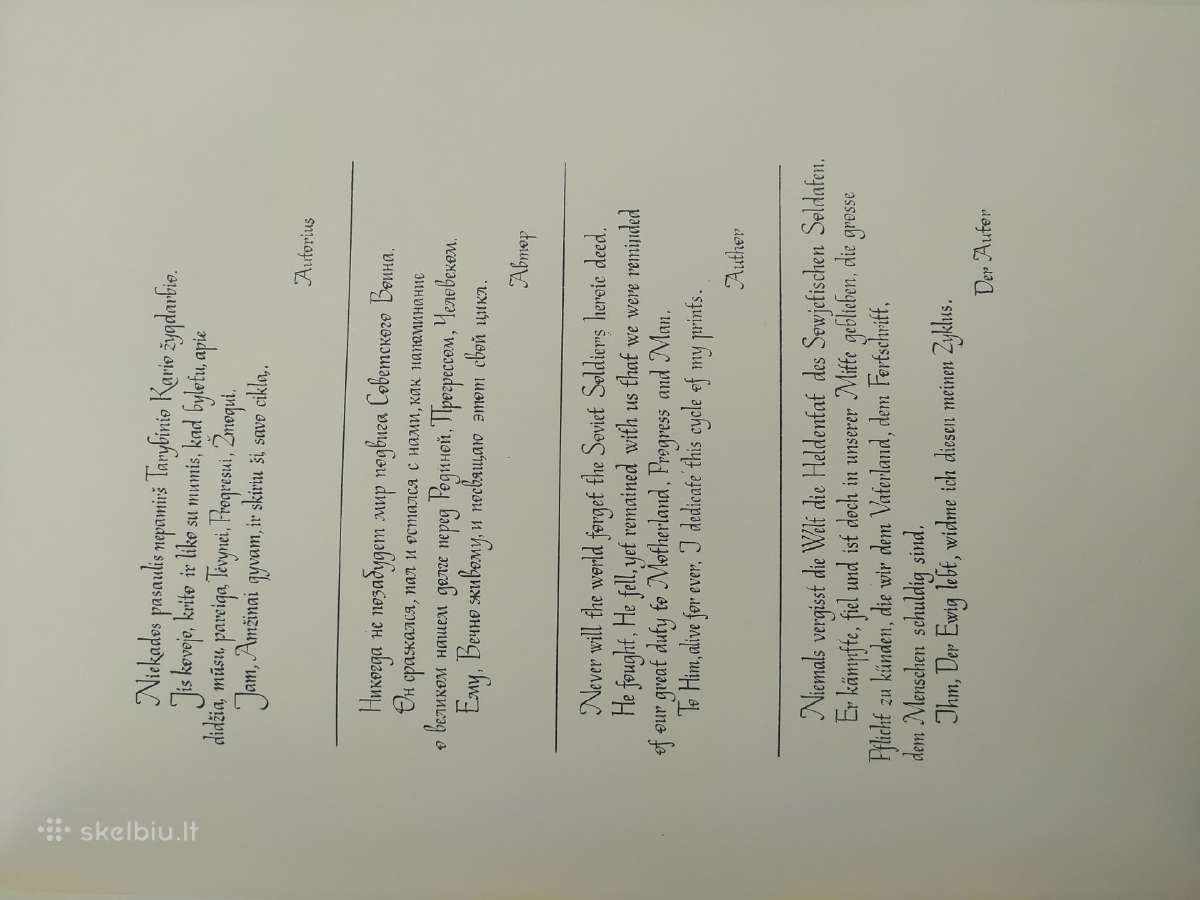 Niekados pasaulis nepamirš Tarybinio Kario žygdarbio.
Jis kovojo, krito ir liko su mumis, kad bylotu, apie
didžią, mūsų, pareigą, Tėvynei, Progresui, Žmogui.
Jam, Amžinai gyvam, ir skiriu šį, savo ciklą,.
Autorius
Никогда не позабудет мир подвига Советского Воина.
Он сражался, пал и остался с нами, как напоминание
о великом нашем долге перед Родиной, Прогрессом, Человеком.
Ему, Вечно живому, и посвящаю этот свой цикл.
Автор
Never will the world forget the Soviet Soldier's heroic deed.
He fought, He fell, yet remained with us that we were reminded
of our great duty to Motherland, Progress and Man.
To Him, alive for ever, I dedicate this cycle of my prints.
Author
Niemals vergisst die Welt die Heldentat des Sowjetischen Soldaten.
Er kämpfte, fiel und ist doch in unserer Mitte geblieben, die grosse
Pflicht zu künden, die wir dem Vaterland, dem Fortschritt,
dem Menschen schuldig sind.
Ihm, Der Ewig lebt, widme ich diesen meinen Zyklus.
Der Autor
skelbiu.lt